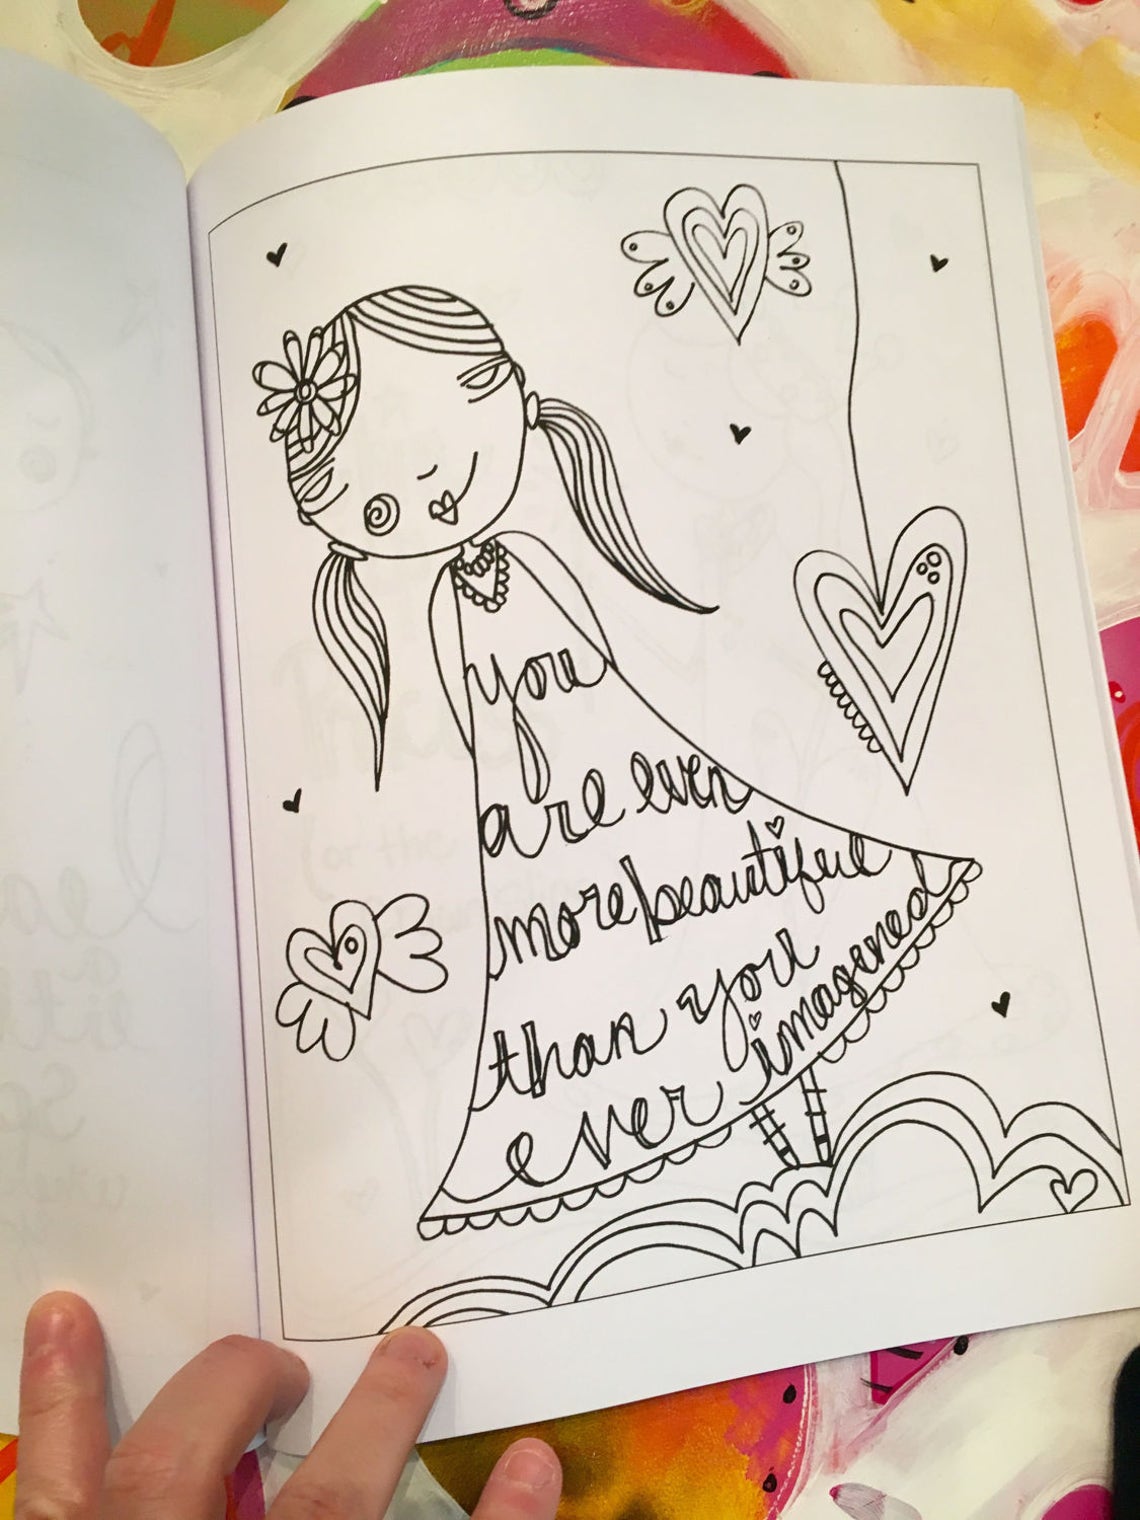 you
are even
more beautiful
than you
ever imagened